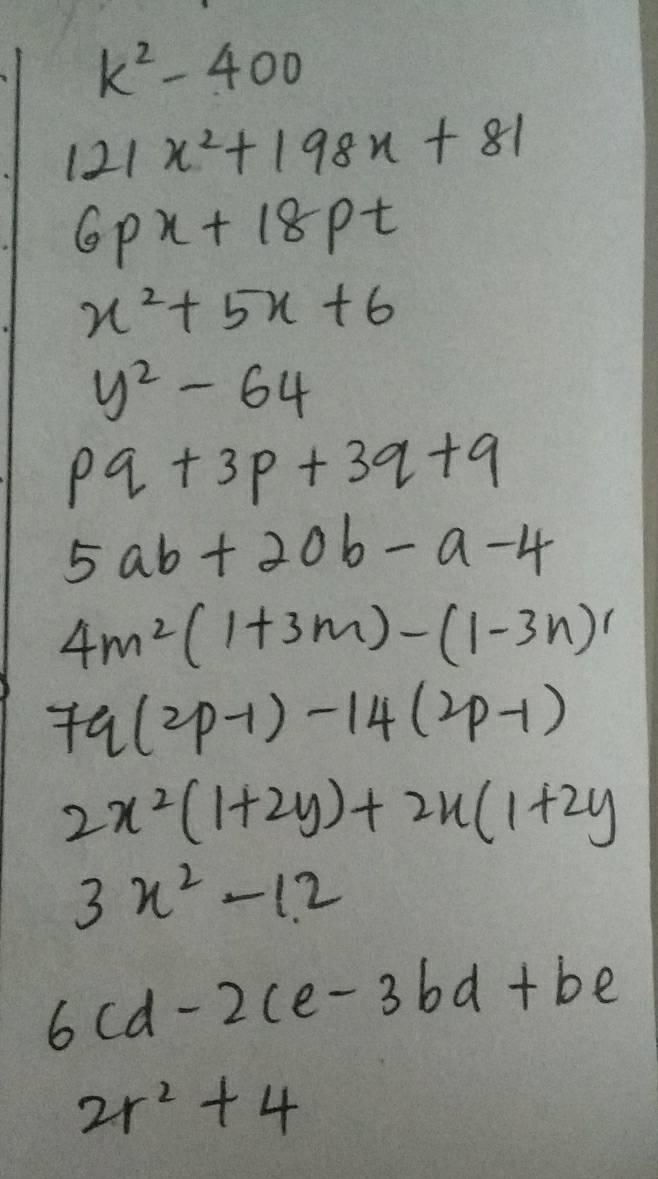 k² - 400
121x² + 198x + 81
6px + 18pt
x² + 5x + 6
y² - 64
pq + 3p + 3q + 9
5ab + 20b - a - 4
4m²(1+3m) - (1-3n)
7q(2p-1) - 14(2p-1)
2x²(1+2y) + 2x(1+2y
3x² - 12
6cd - 2ce - 3bd + be
2r² + 4